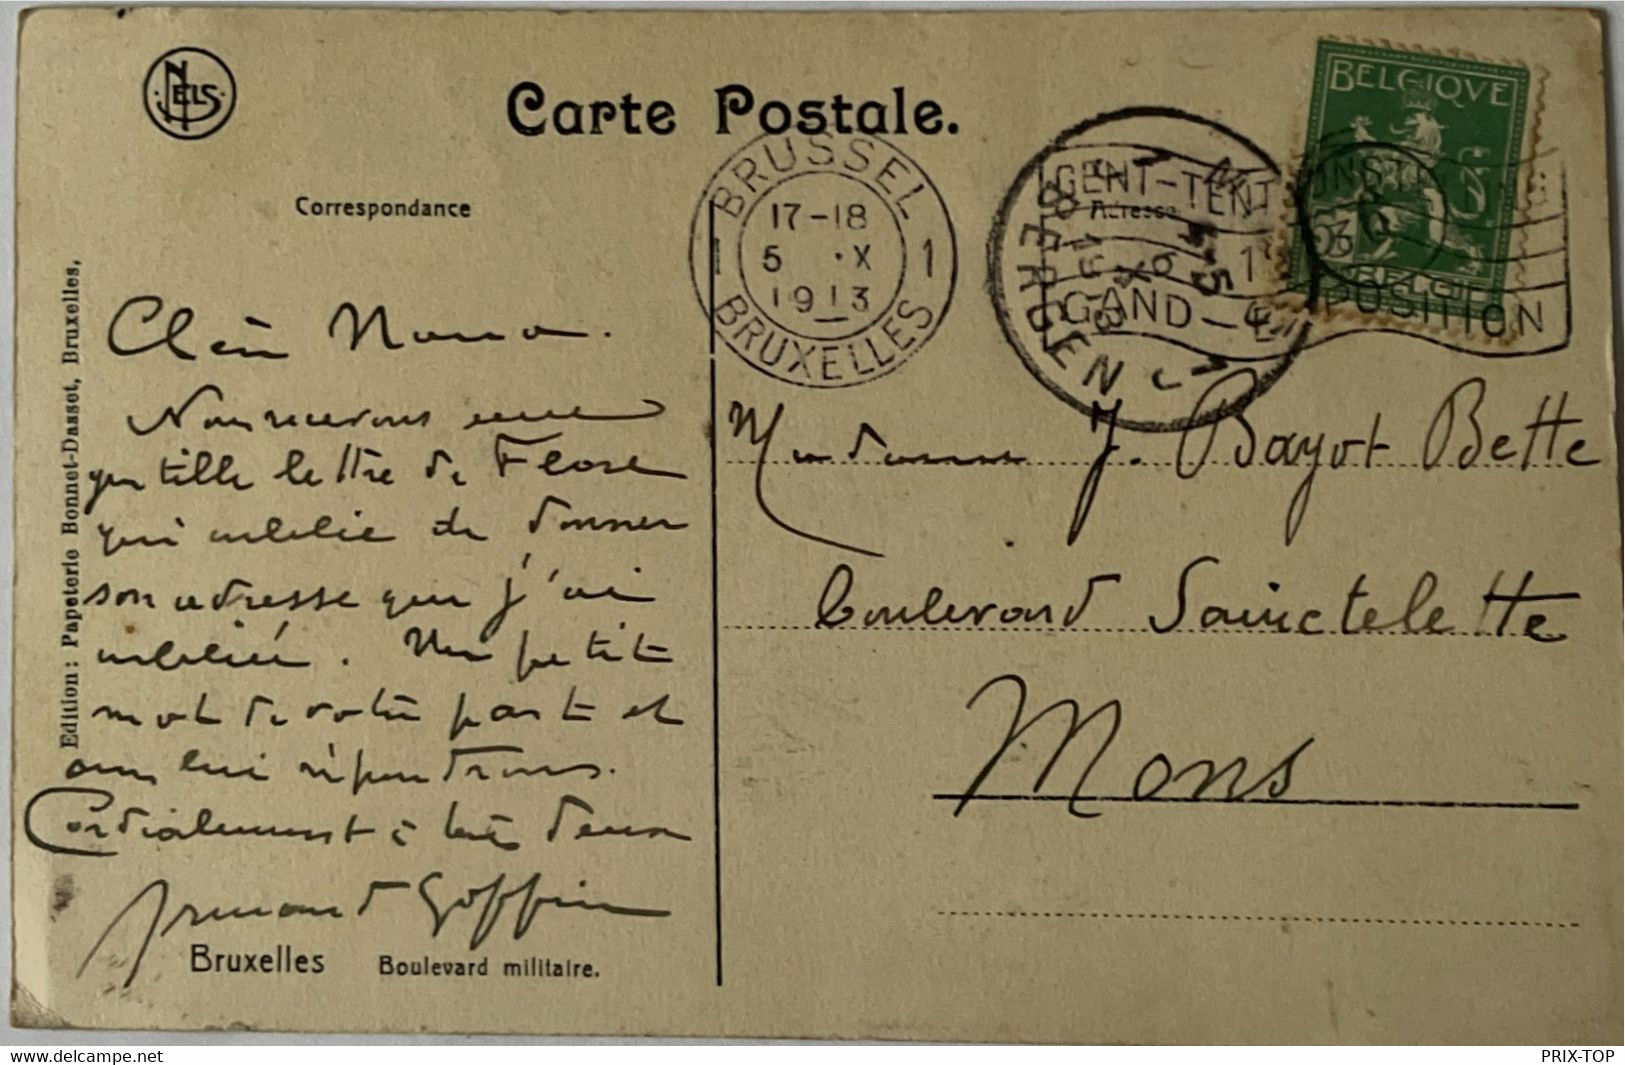 NELS
Carte Postale.
Correspondance
Adresse
BELGIQUE
BELGIË
BRUSSEL
1 1
17-18
5 ·X
1913
BRUXELLES
GENT-TENT
GAND-
POSITION
BERGEN
Edition : Papeterie Bonnet-Dasset, Bruxelles,
Chère Nona.
Nous recevons une
gentille lettre de Flore
qui oublie de donner
son adresse que j'ai
oubliée. Un petit
mot de votre part et
lui répondrons.
Cordialement à tous deux
Armand Goffin
Bruxelles Boulevard militaire.
Madame J. Bayot Bette
boulevard Sainctelette
Mons
delcampe.net
PRIX-TOP